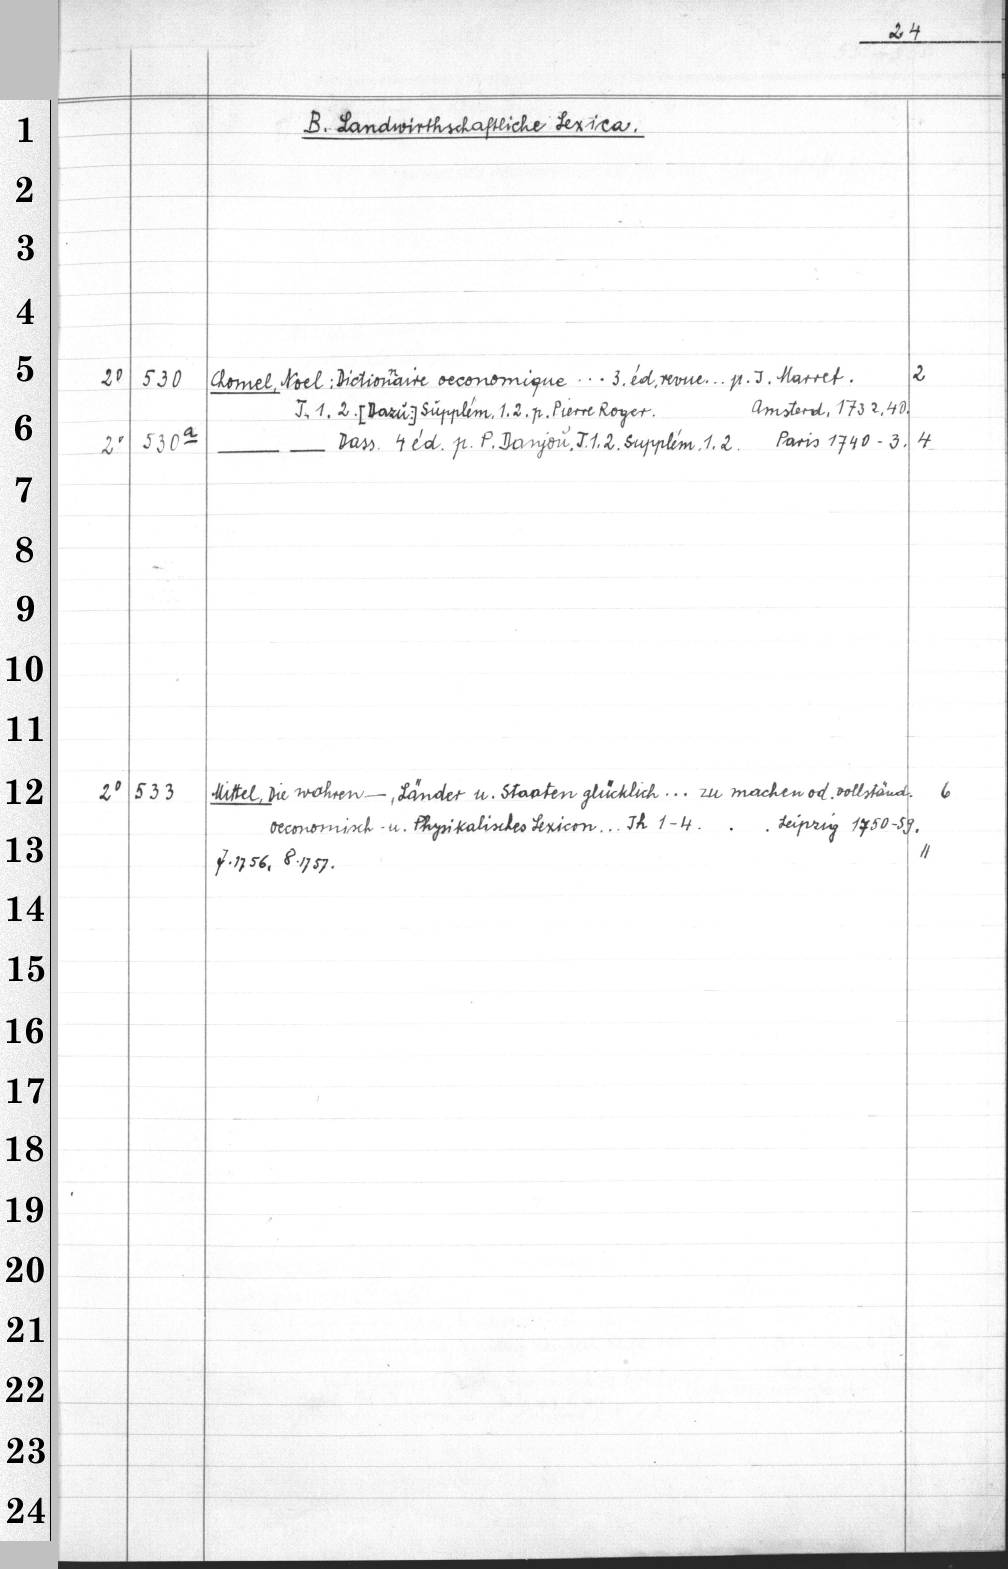 24
1 B. Landwirthschaftliche Lexica.
2
3
4
5 2° 530 Chomel, Noel: Dictionnaire oeconomique ... 3. éd, revue... p. J. Marret. 2
T. 1. 2. [Dazu:] Supplém. 1. 2. p. Pierre Roger. Amsterd, 1732, 40.
6 2° 530a ___ ___ Dass. 4 éd. p. P. Danjou, T. 1. 2. Supplém. 1. 2. Paris 1740-3. 4
7
8
9
10
11
12 2° 533 Mittel, Die wahren —, Länder u. Staaten glücklich ... zu machen od. vollständ. 6
oeconomisch- u. Physikalisches Lexicon... Th 1-4. . . Leipzig 1750-59.
13 7.1756, 8.1757. "
14
15
16
17
18
19
20
21
22
23
24